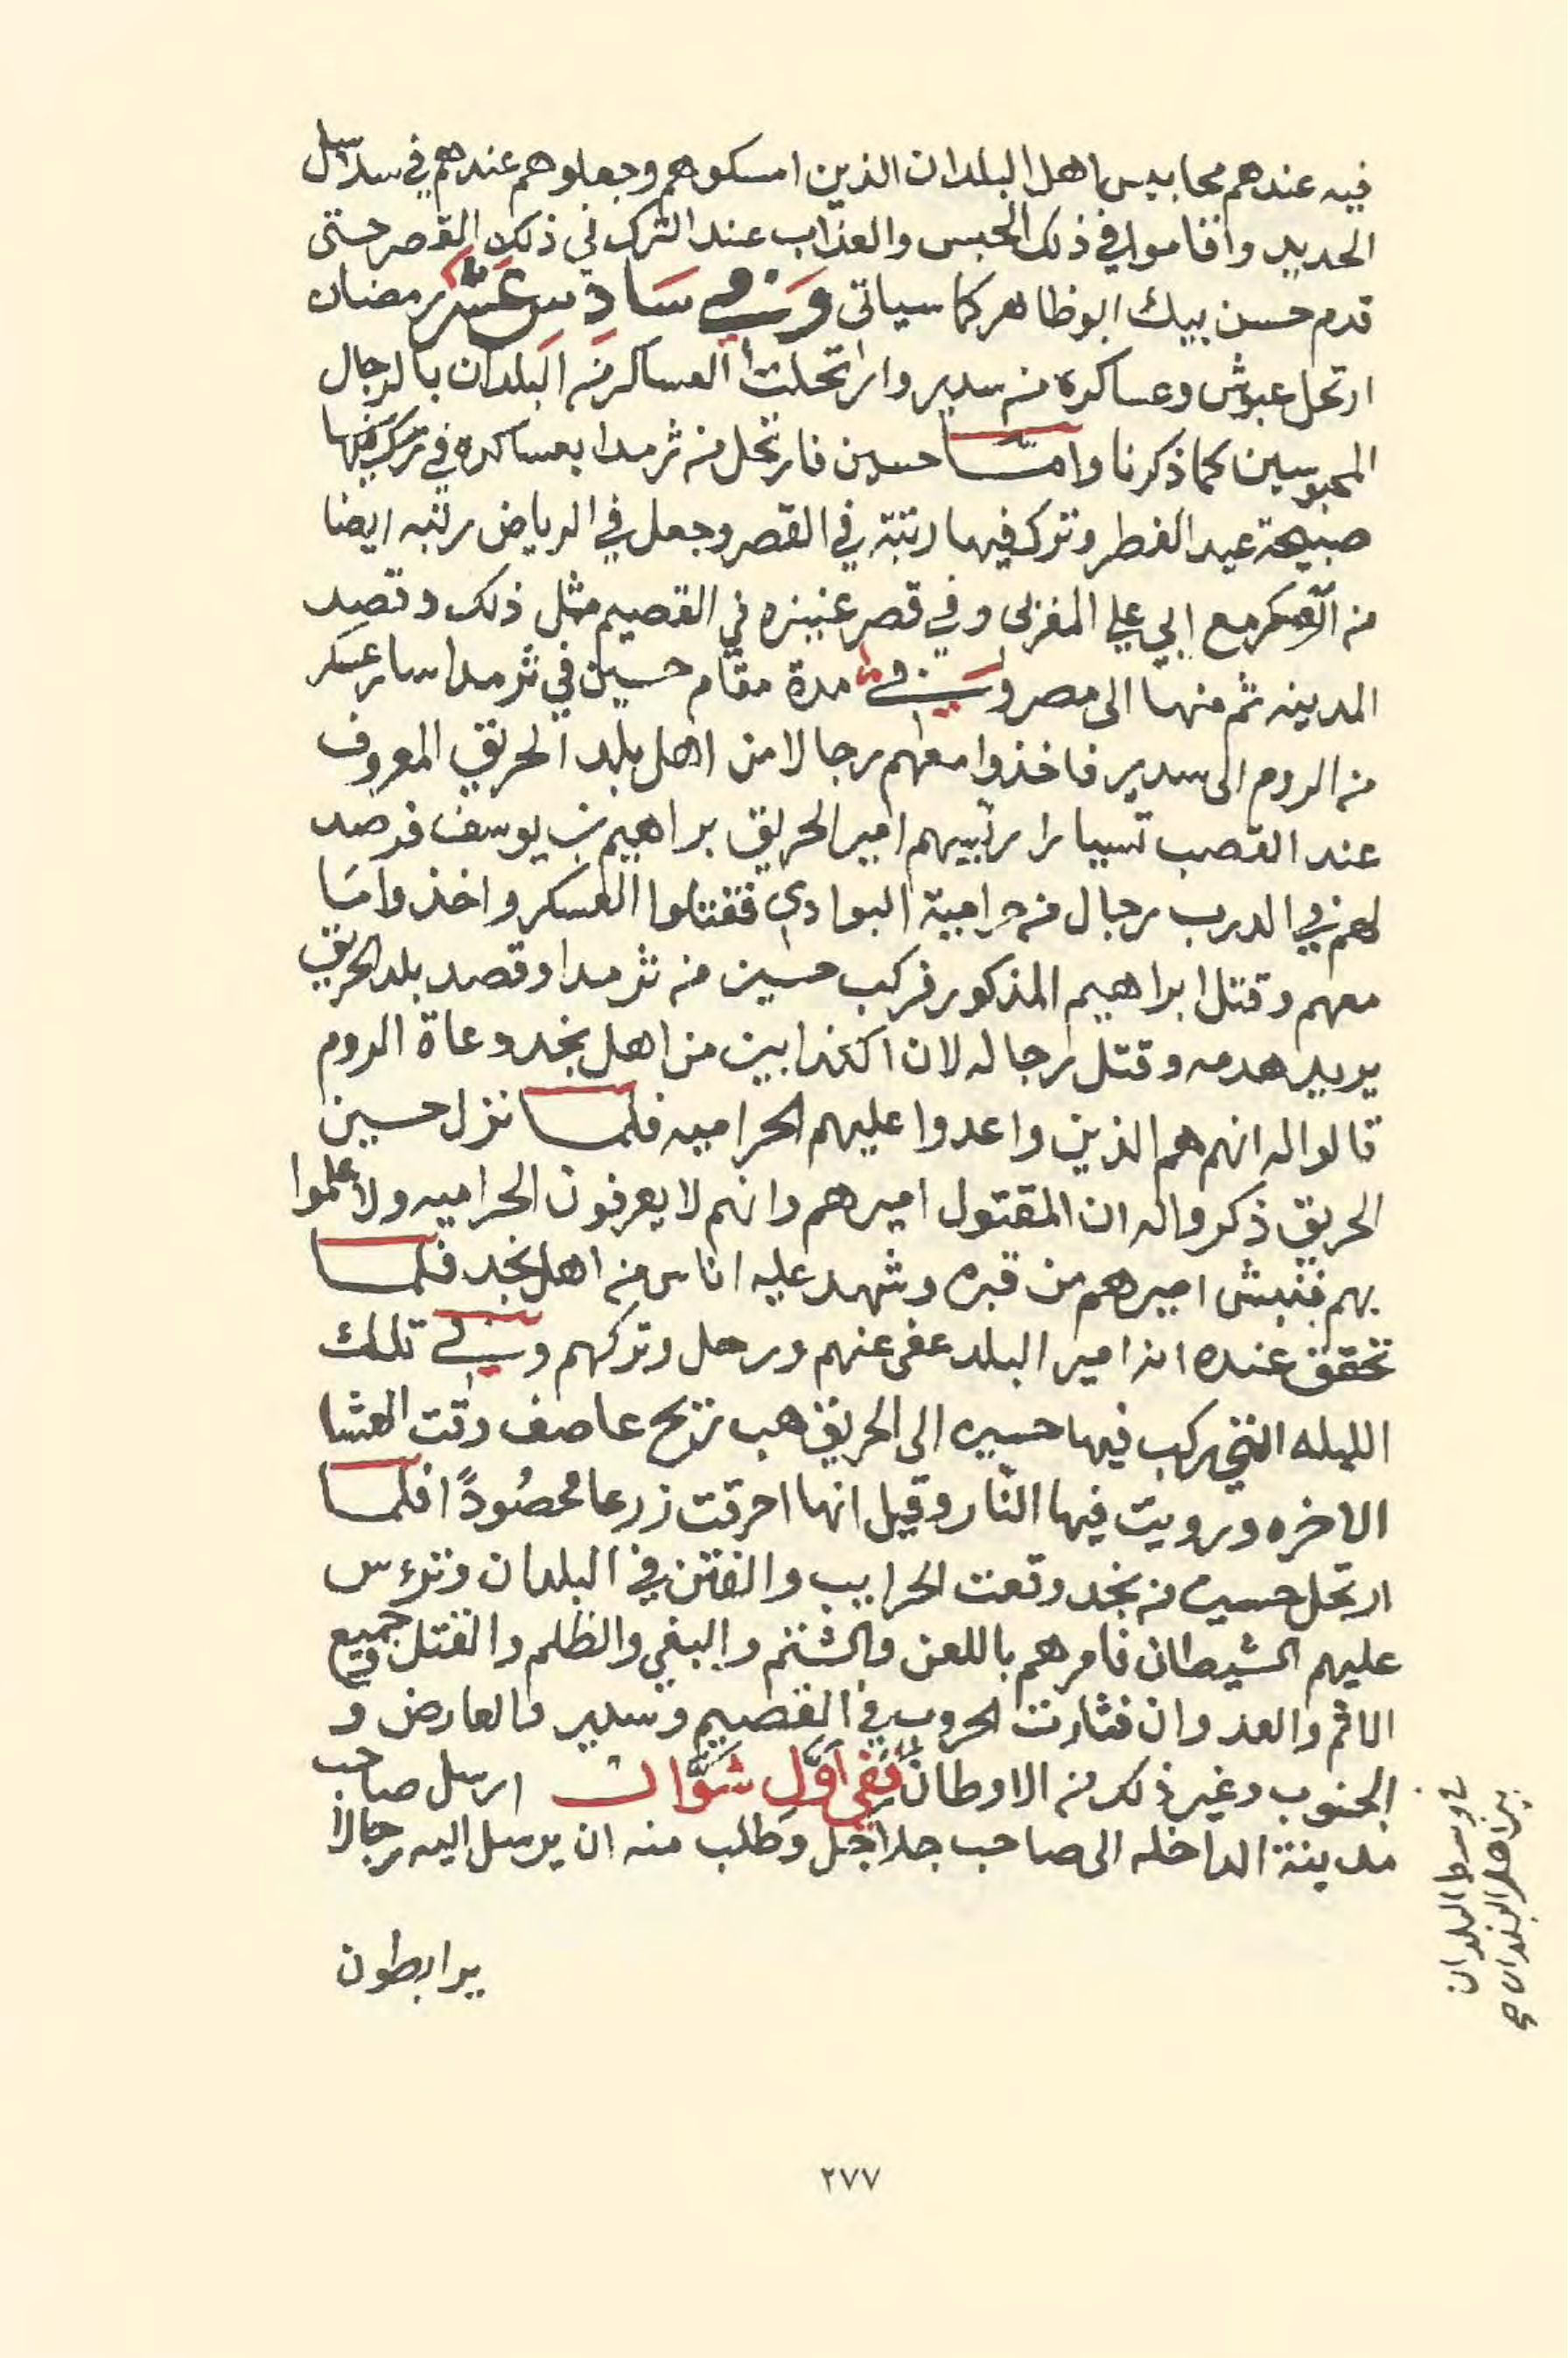 فيه عندهم محابيس اهل البلدان الذين امسكوهم وجعلوهم عندهم في سلاسل
الحديد واقاموا في ذلك الحبس والعذاب عند الترك في ذلك القصر حتى
قدم حسن بيك ابو ظاهر كما سياتي وَفي سَادِس عَشَر رمضان
ارتحل عبوش وعساكره من سدير وارتحلت العساكر من البلدان بالرجال
المحبوسين كما ذكرنا وامّا حسين فارتحل من ثرمدا بعساكره في
صبيحة عيد الفطر وترك فيها رتبة في القصر وجعل في الرياض رتبه ايضا
من العسكر مع ابي علي المغربي وفي قصر عنيزه في القصيم مثل ذلك وقصد
المدينه ثم منها الى مصر وَفي مدة مقام حسين في ثرمدا سار عسكر
من الروم الى سدير فاخذوا معهم رجالا من اهل بلد الحريق المعروف
عند القصب تسيارا رئيسهم امير الحريق براهيم بن يوسف فرصد
لهم في الدرب رجال من حرامية البوادي فقتلوا العسكر واخذوا ما
معهم وقتل ابراهيم المذكور فركب حسين من ثرمدا وقصد بلد الحريق
يريد هدمه وقتل رجاله لان الكذابين من اهل نجد وعاة الروم
قالوا له انهم هم الذين واعدوا عليهم الحراميه فلما نزل حسين
الحريق ذكروا له ان المقتول اميرهم وانهم لا يعرفون الحراميه ولا علموا
بهم فنبش اميرهم من قبره وشهد عليه اناس من اهل نجد فلما
تحقق عنده انه امير البلد عفى عنهم ورحل وتركهم وفي تلك
الليله التي ركب فيها حسين الى الحريق هب ريح عاصف وقت العشا
الاخره ورويت فيها النّار وقيل انها احرقت زرعا محصُودًا فلما
ارتحل حسين من نجد وقعت الحرايب والفتن في البلدان وترءس
عليهم الشيطان فامرهم باللعن والشتم والبغي والظلم والقتل وجميع
الاثم والعدوان فثارت الحروب في القصيم وسدير والعارض و
الجنوب وغير ذلك من الاوطان فَفي اَوَّل شَوَّال ارسل صاحب
مدينة الداخله الى صاحب جلاجل وطلب منه ان يرسل اليه رجالا
يرابطون
في وسط البلدان
بين اهل البلدان صح
٢٧٧